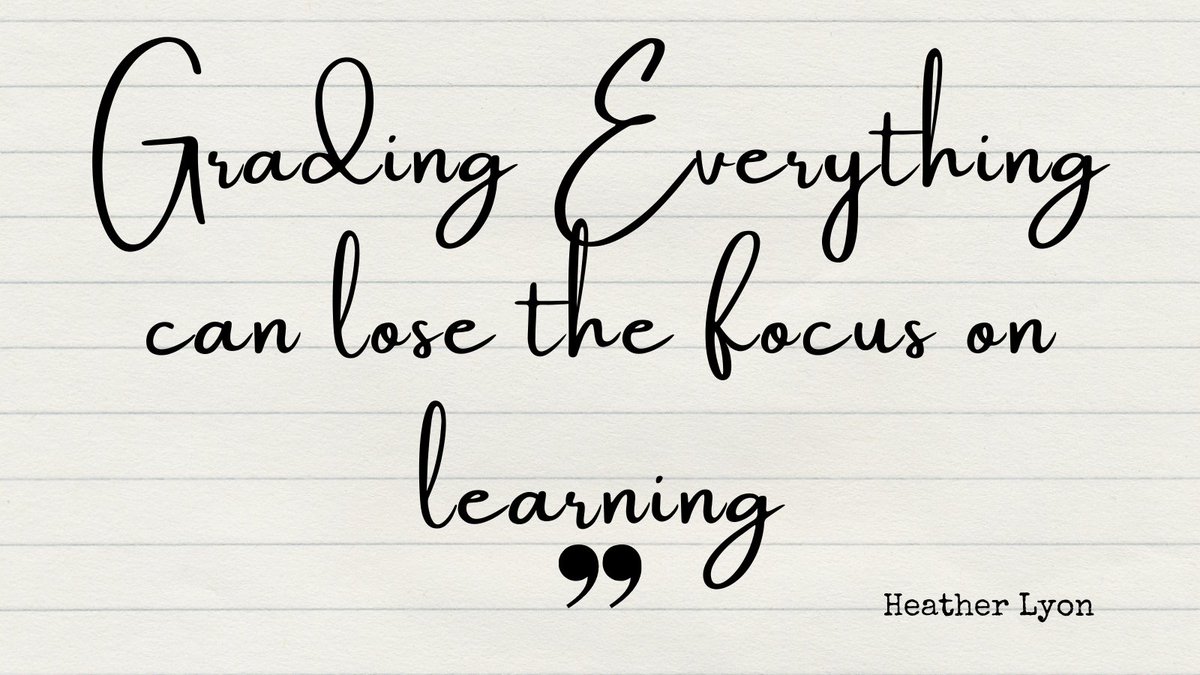 Grading Everything
can lose the focus on
learning
”
Heather Lyon